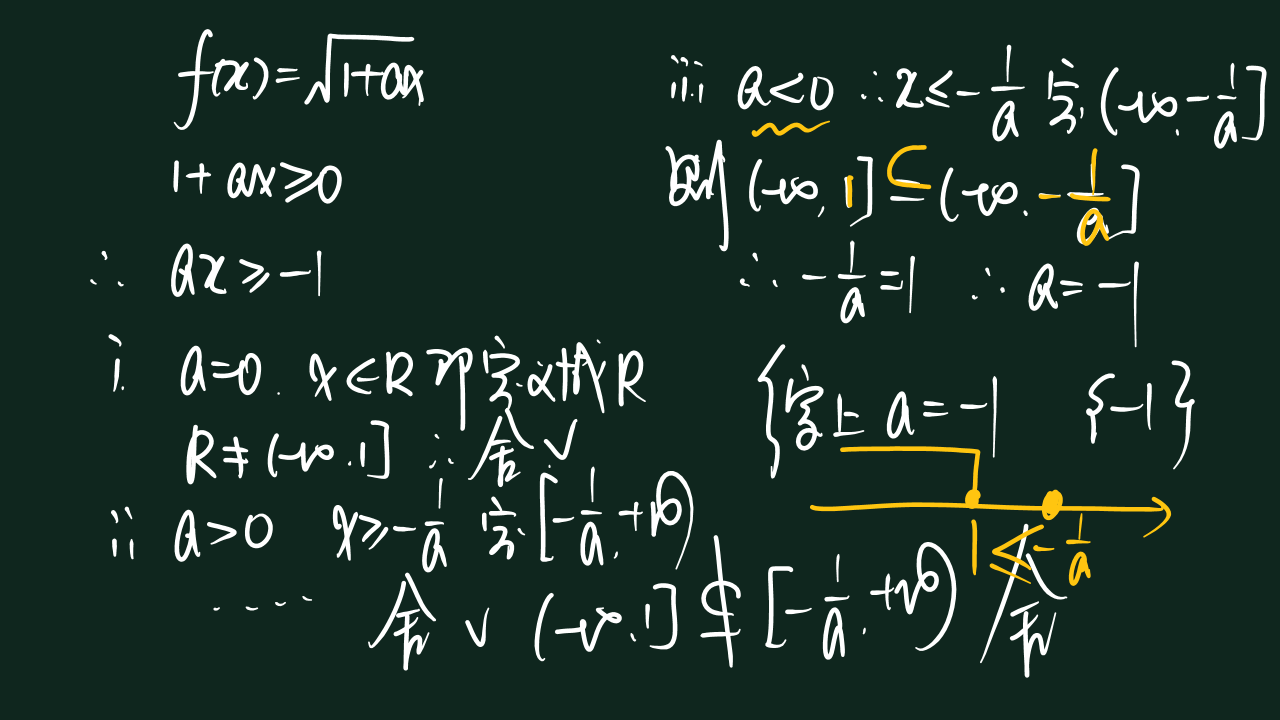 f(x)=√(1+ax)
1+ax≥0
∴ ax≥-1
i. a=0. x∈R 即定义域R
R≠(-∞.1] ∴舍√
ii a>0 x≥-1/a 定[-1/a.+∞)
......
舍√ (-∞.1]⊈[-1/a.+∞) 舍
iii a<0 ∴x≤-1/a 定(-∞.-1/a]
则(-∞,1]⊆(-∞.-1/a]
∴-1/a=1 ∴a=-1
综上 a=-1 {-1}
1≤-1/a